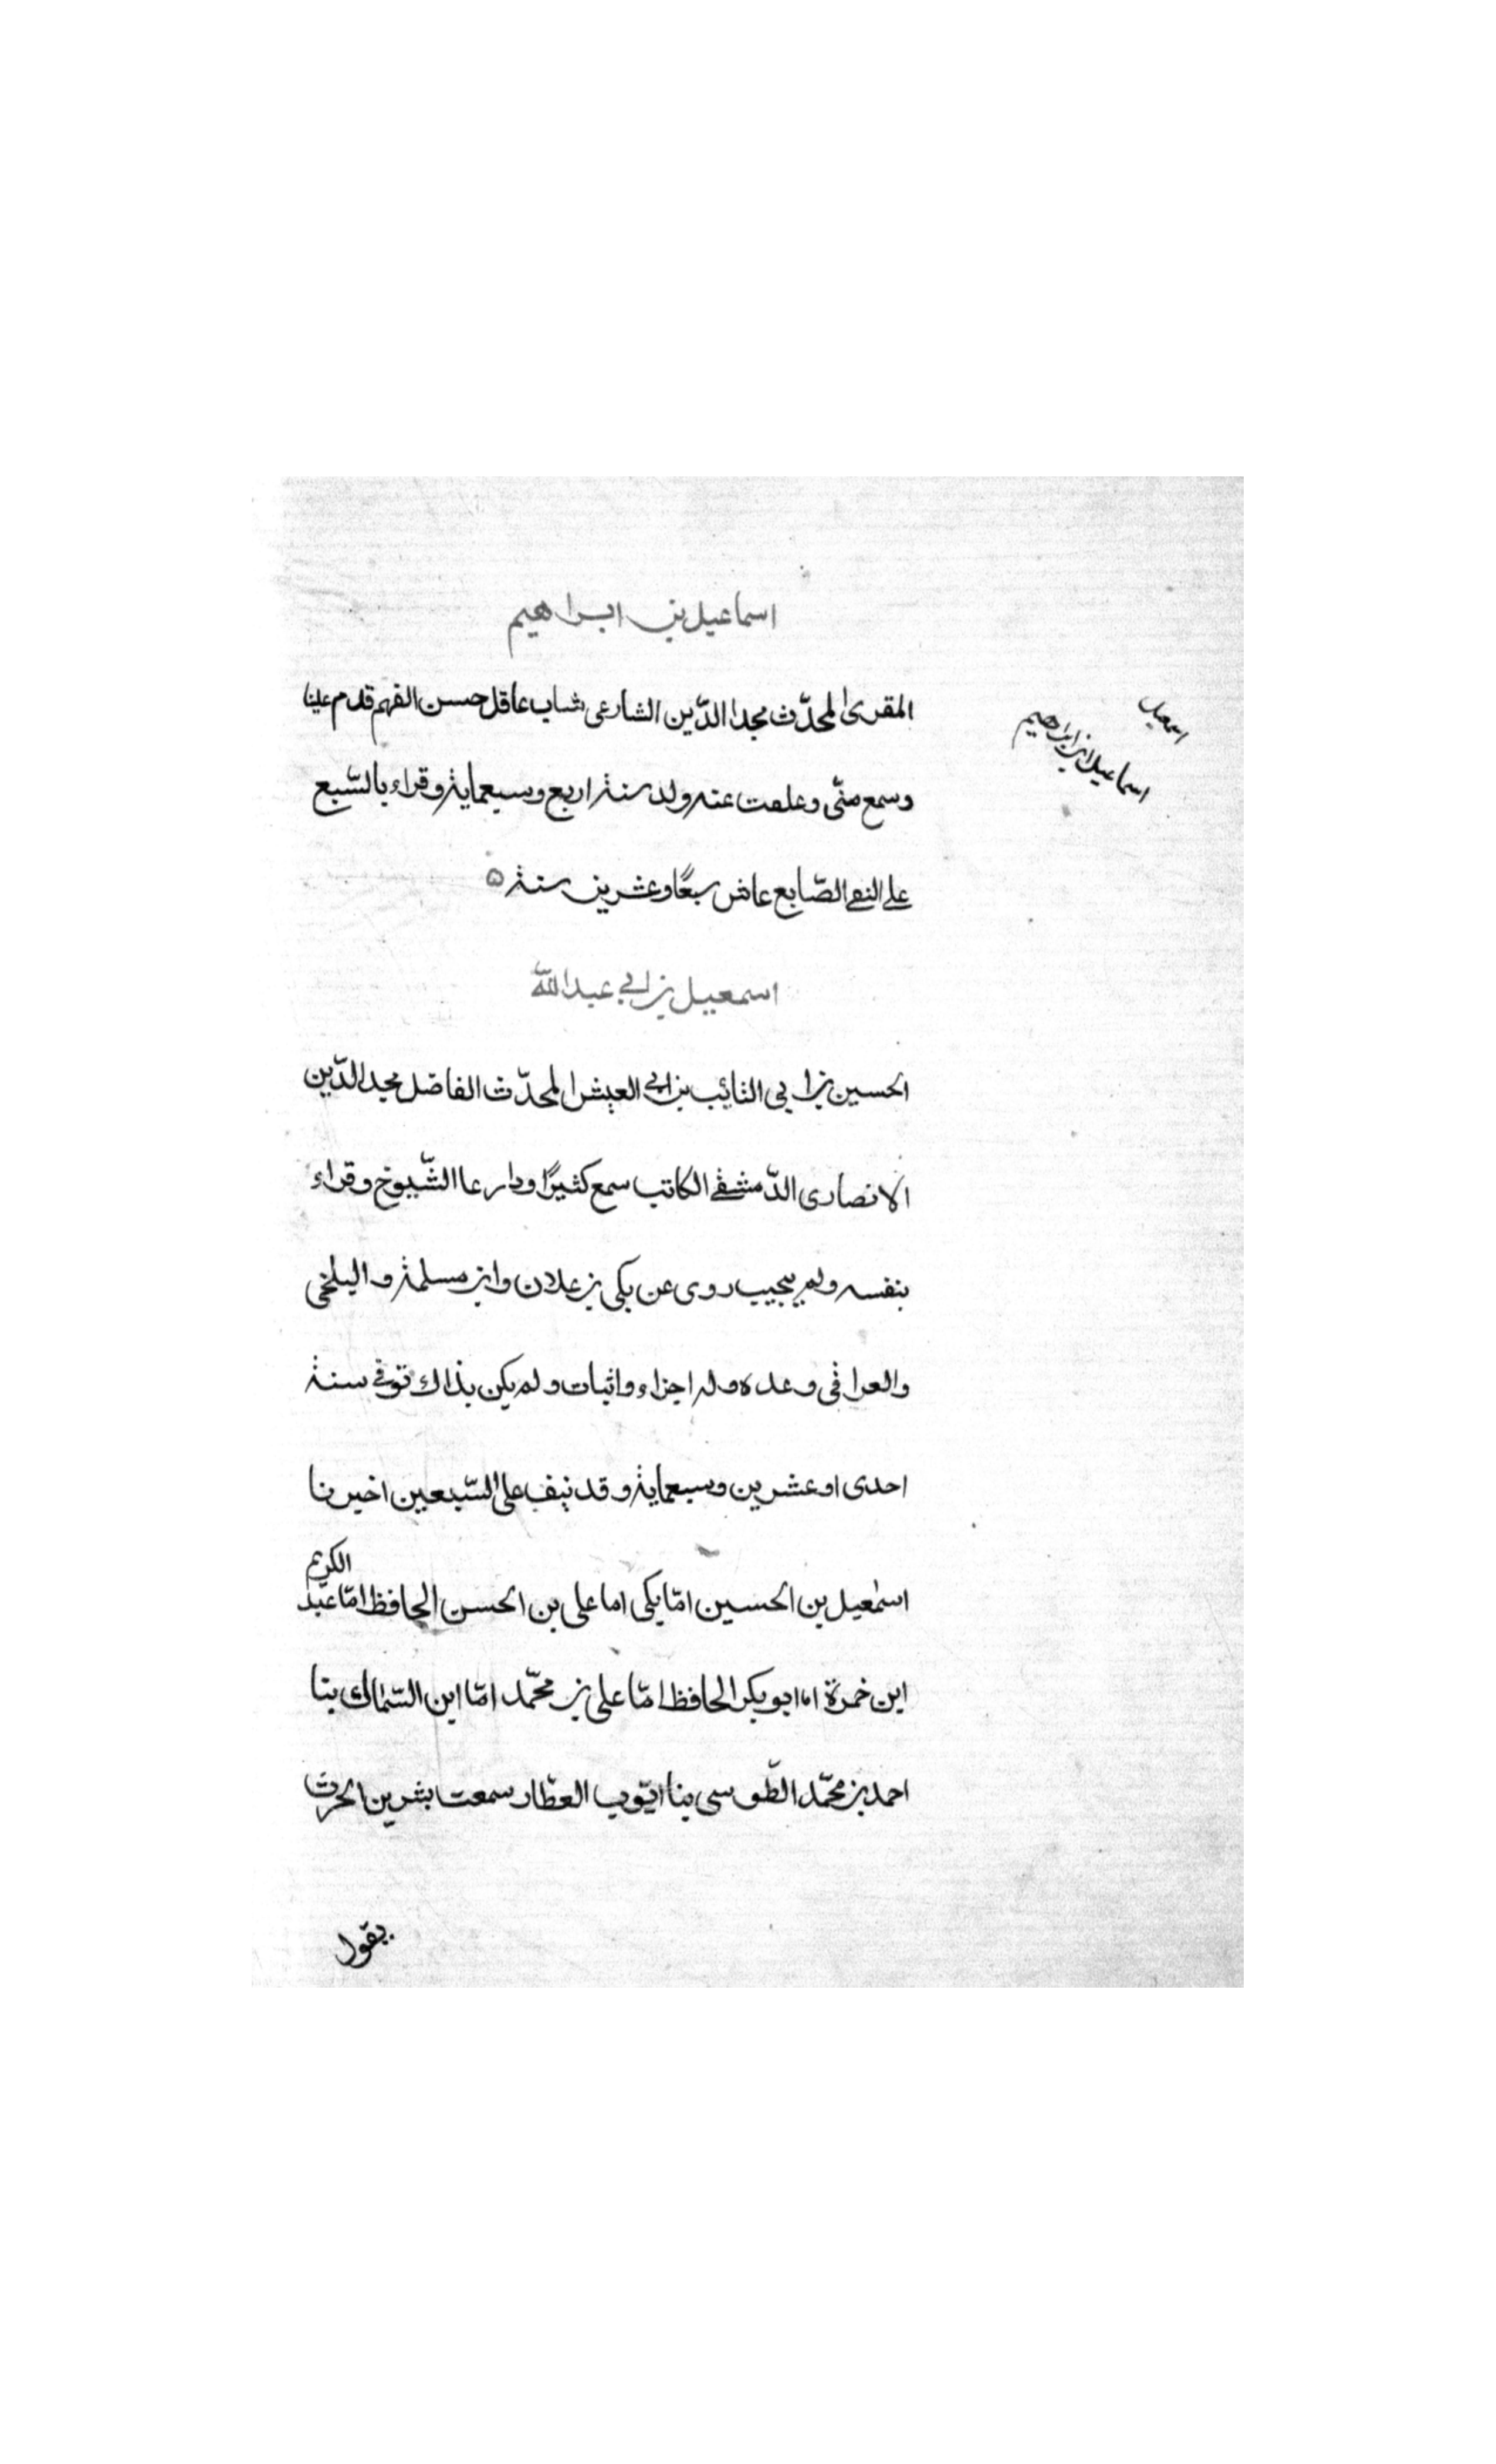 اسماعيل بن ابراهيم
المقرى المحدّث مجد الدّين الشارعى شاب عاقل حسن الفهم قدم علينا
وسمع منّى وعلقت عنه ولد سنة اربع وسبعماية وقراء بالسّبع
على التقى الصّايع عاش سبعًا وعشرين سنة ه
اسمعيل بن ابى عبد الله
الحسين بن ابى التائب بن ابى العيش المحدّث الفاضل مجد الدّين
الانصارى الدّمشقى الكاتب سمع كثيرًا ودار عا الشّيوخ وقراء
بنفسه ولم يجيب روى عن بكى بن علان وابن مسلمة والبلخى
والعراقى وعده وله اجزاء واثبات ولم يكن بذاك توفى سنة
احدى او عشرين وسبعماية وقد نيف على السّبعين اخيرنا
اسمعيل بن الحسين امّا يكى اما على بن الحسن الحافظ امّا عبد الكريم
ابن خمرة اما ابو بكر الحافظ امّا على بن محمّد امّا ابن السّماك بنا
احمد بن محمّد الطّوسى بنا ايّوب العطّار سمعت بشر بن الحرث
يقول
اسمعيل
اسماعيل ابن ابراهيم